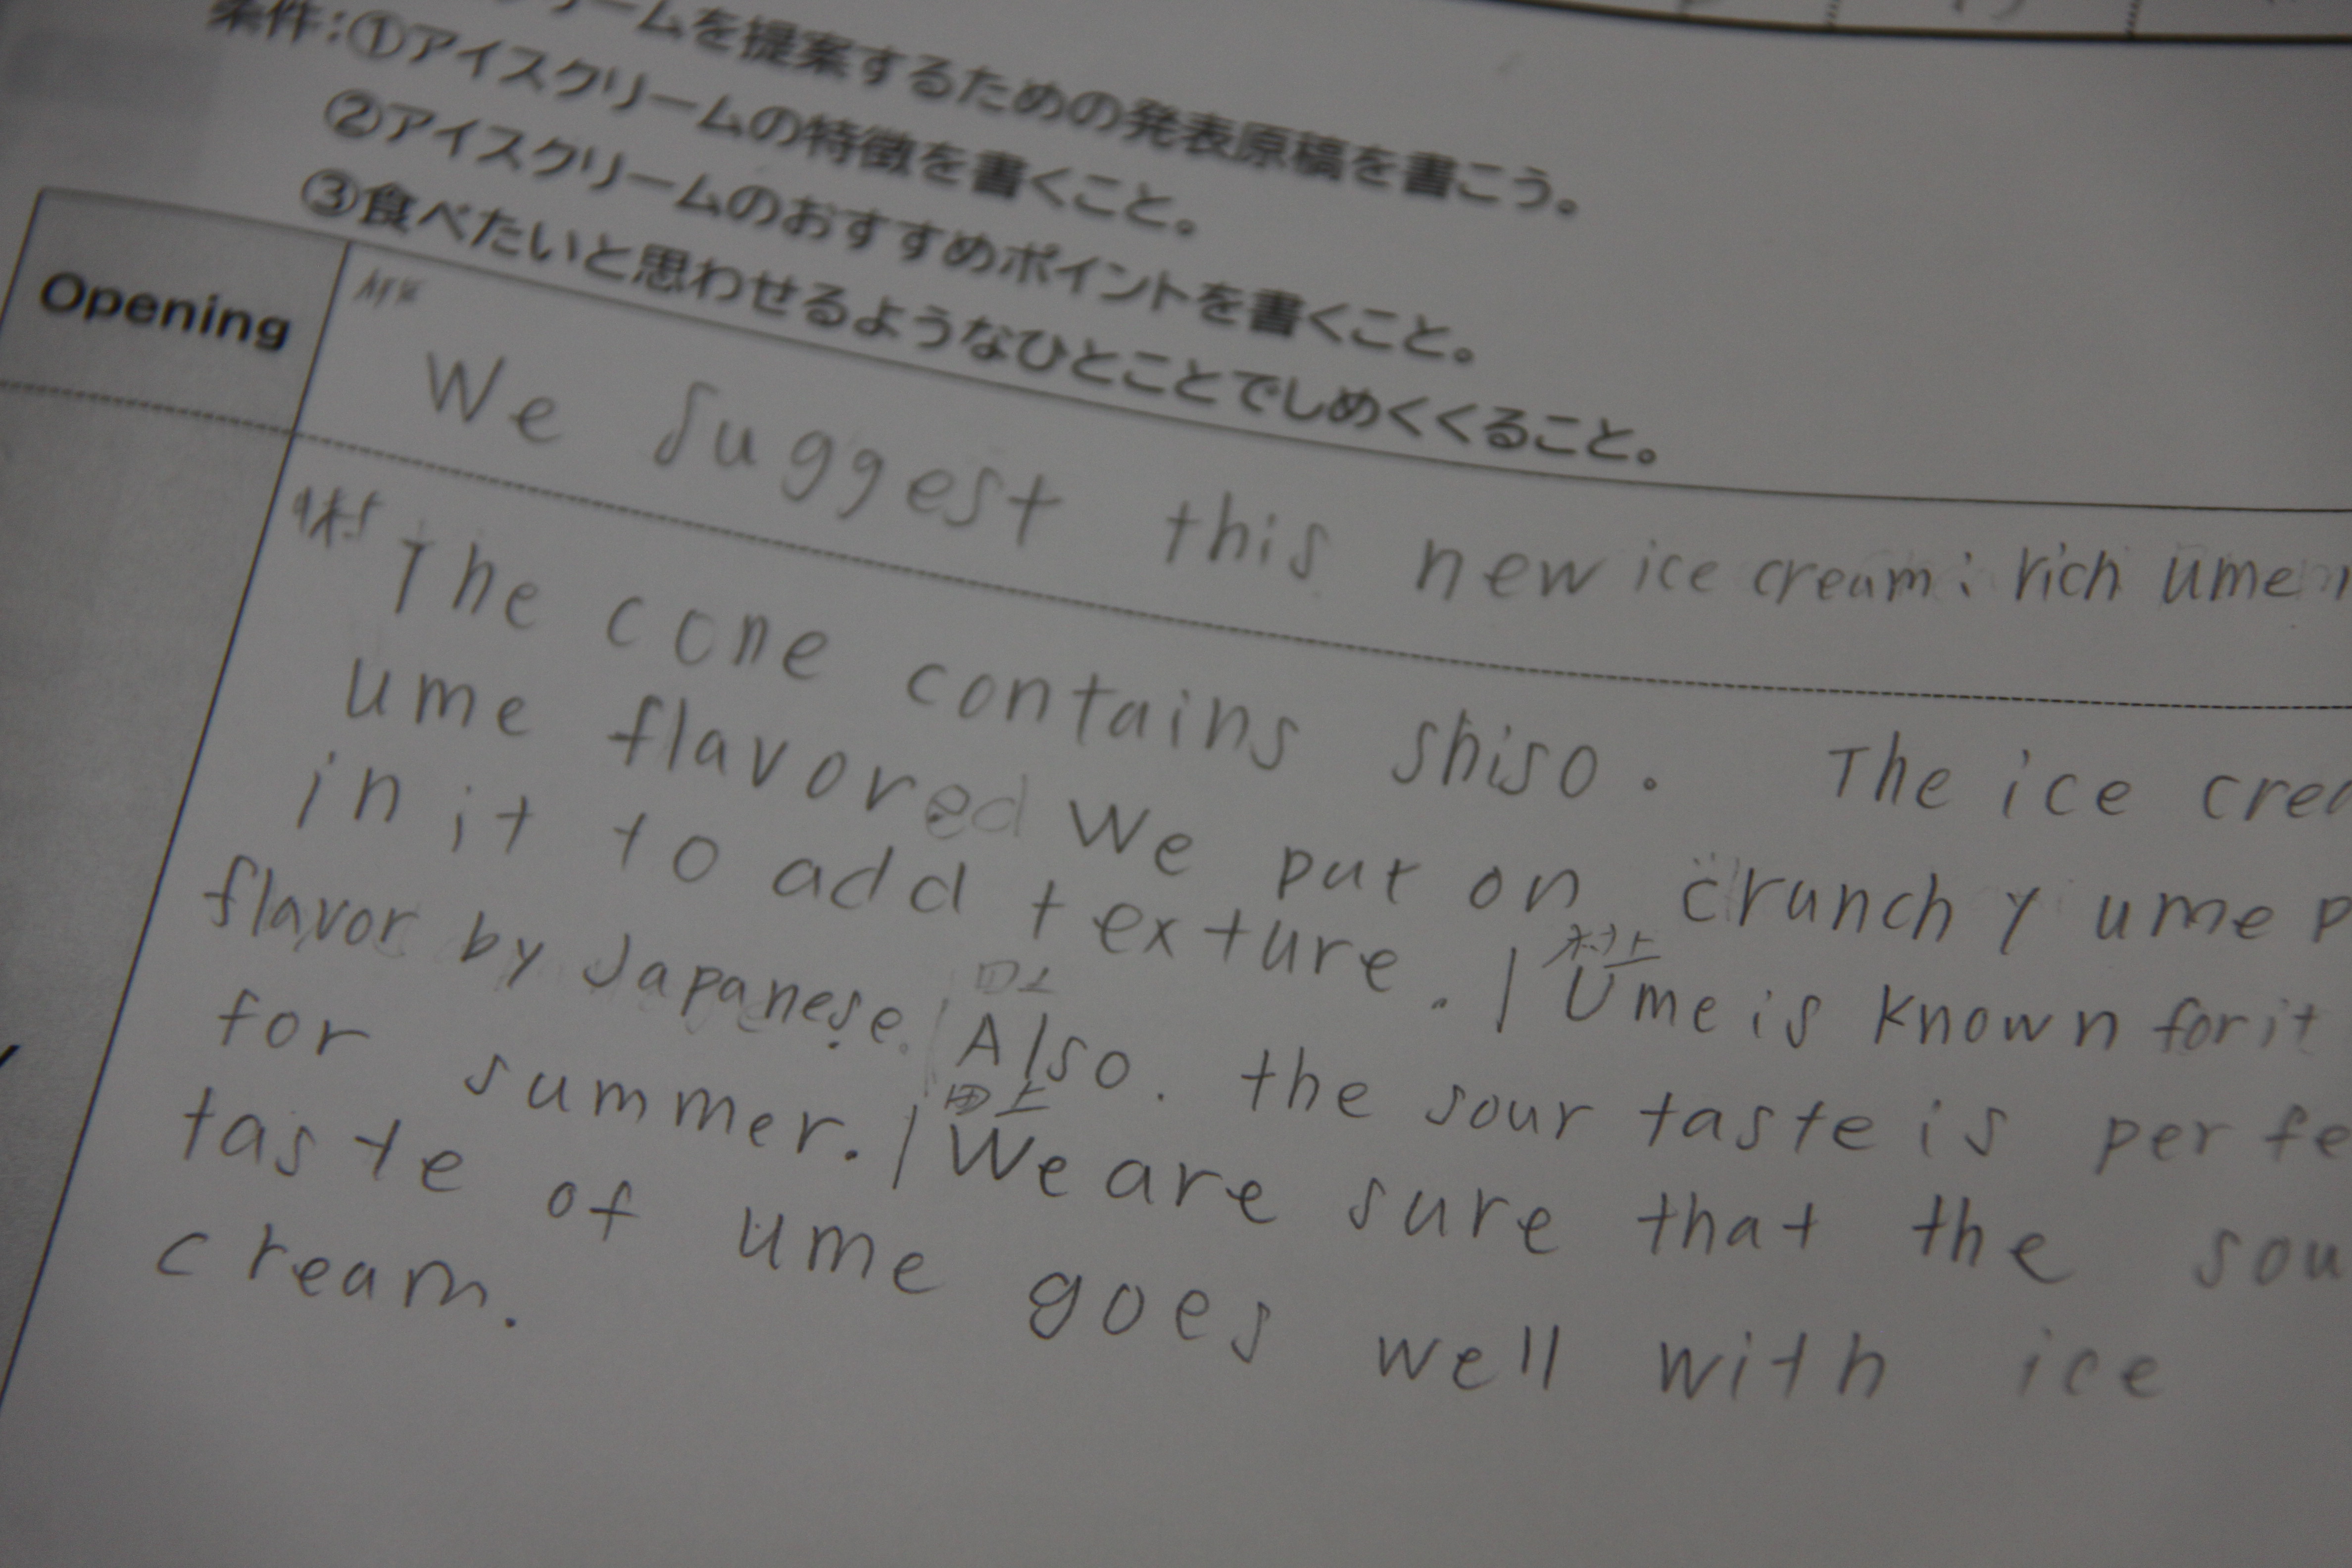 クリームを提案するための発表原稿を書こう。
条件:①アイスクリームの特徴を書くこと。
②アイスクリームのおすすめポイントを書くこと。
③食べたいと思わせるようなひとことでしめくくること。
Opening
We suggest this new ice cream: rich ume
The cone contains shiso. The ice crea
ume flavored We put on crunchy ume p
in it to add texture. | 村上 Ume is known for it
flavor by Japanese. | 田上 Also. the sour taste is perfe
for summer. | 田上 We are sure that the sou
taste of ume goes well with ice
cream.